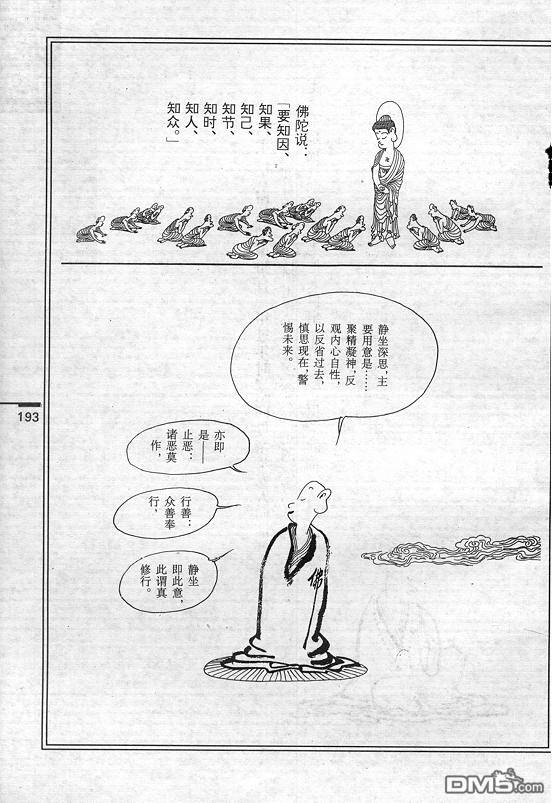 佛陀说：
「要知因、
知果、
知己、
知节、
知时、
知人、
知众。」
静坐深思，主
要用意是……
聚精凝神，反
观内心自性，
以反省过去，
慎思现在，警
惕未来。
亦即
是——
止恶：
诸恶莫
作，
行善：
众善奉
行，
静坐
即此意，
此谓真
修行。
佛
193
DM5.com